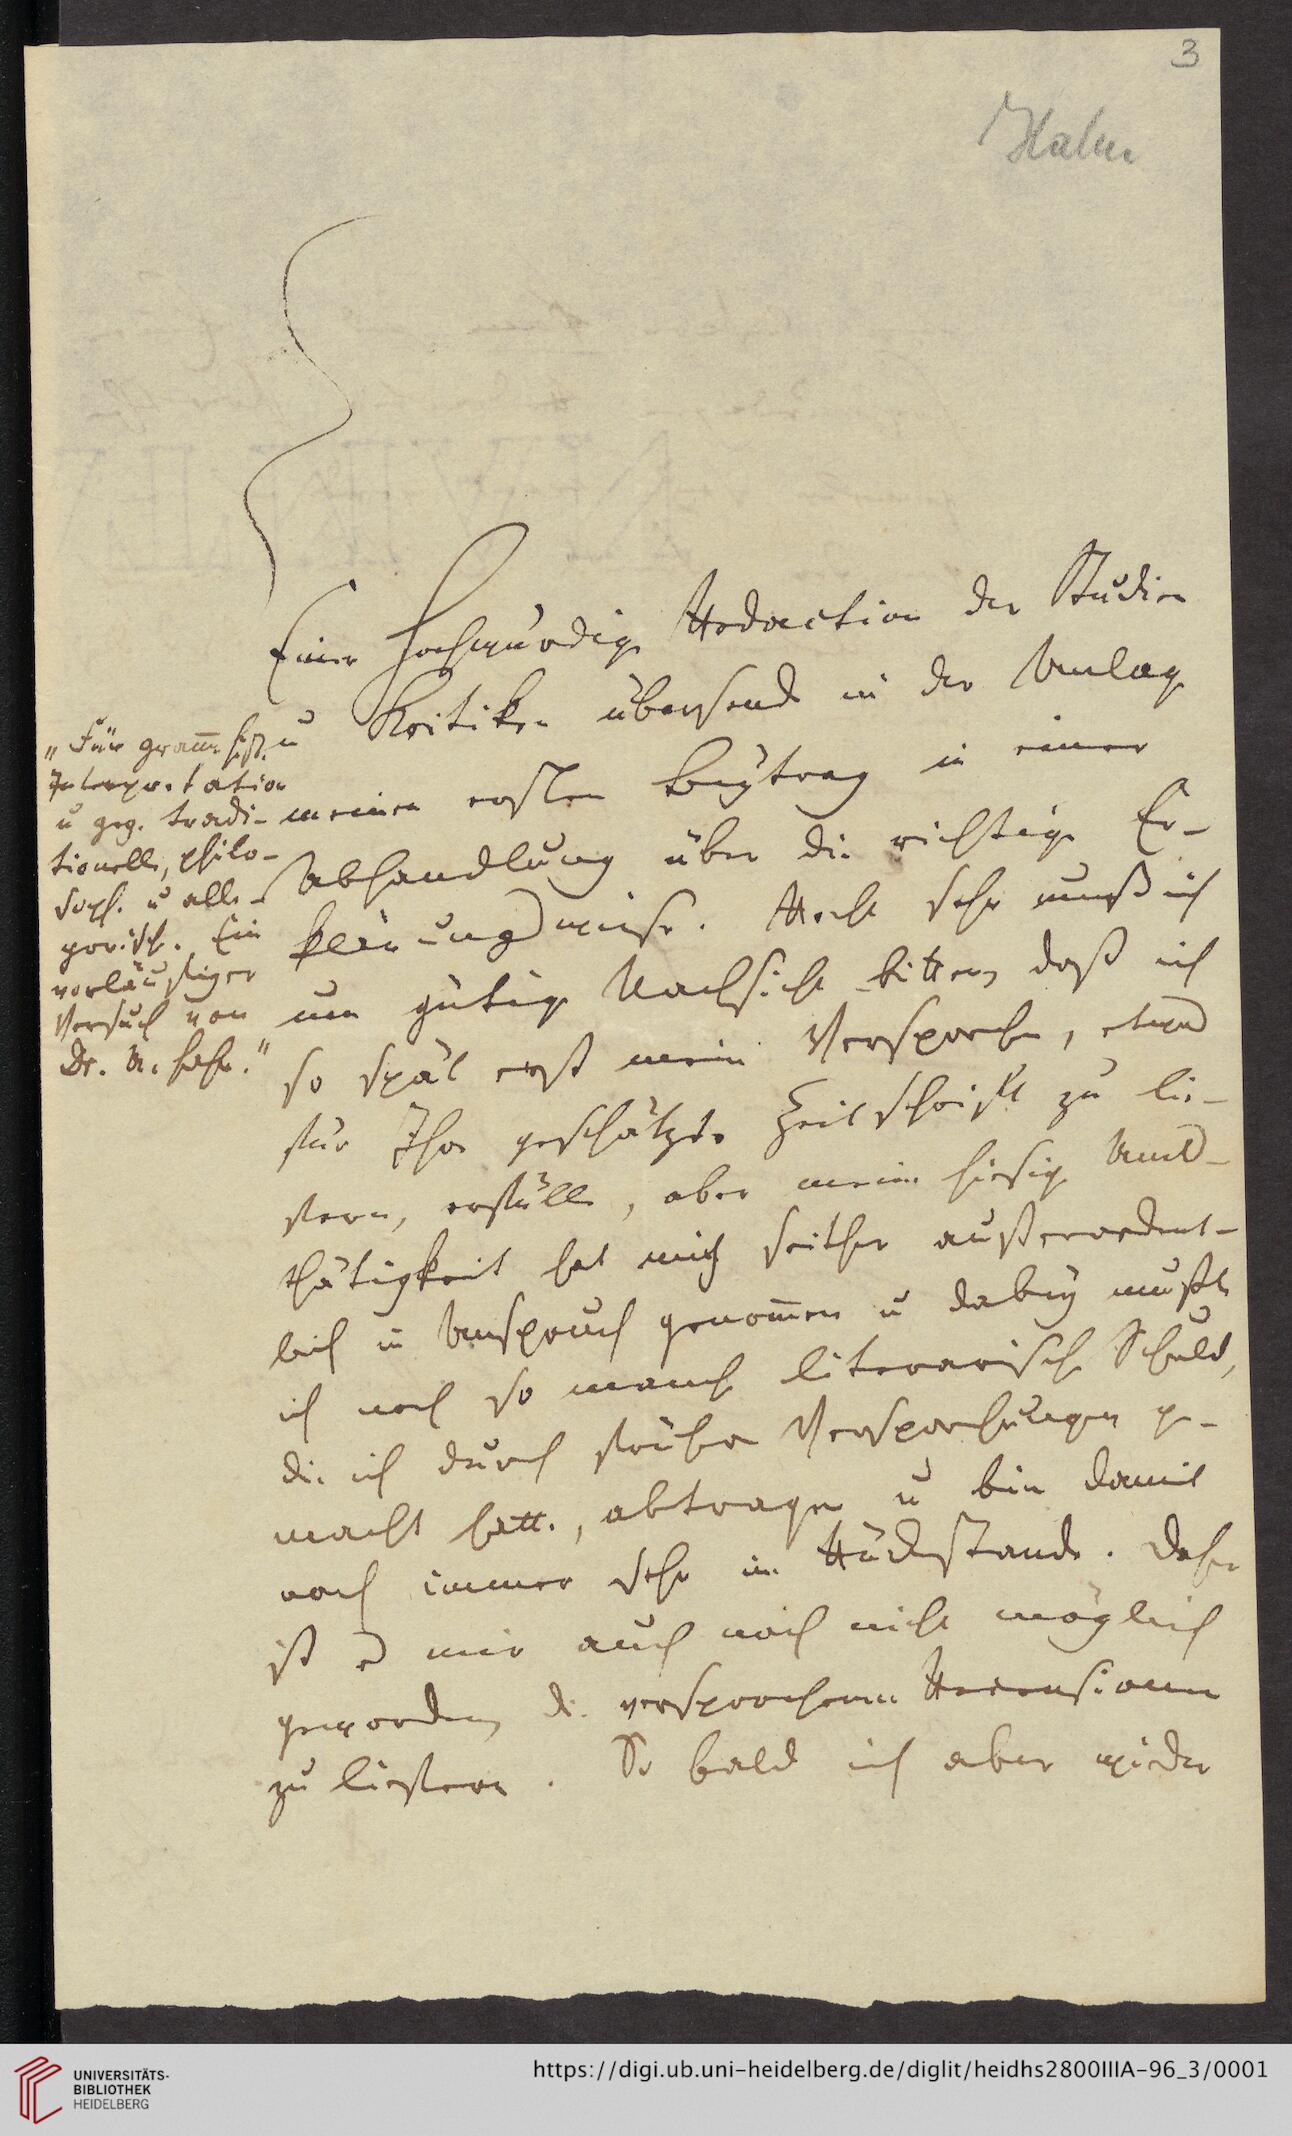 3
Hahn
Einer Hochwürdige Redaction der Studien
u Kritiken übersende in der Anlage
meinen ersten Beytrag in einer
Abhandlung über die richtige Er-
klärungsweise. Recht sehr muß ich
um gütige Nachsicht bitten, daß ich
so spät erst mein Versprechen, etwas
für Ihre geschätzte Zeitschrift zu lie-
fern, erfülle, aber meine hiesige Amts-
thätigkeit hat mich seither außerordent-
lich in Anspruch genom̅en u dabey mußte
ich noch so manche literarische Schuld,
die ich durch frühere Versprechungen ge-
macht hatte, abtragen u bin damit
noch immer sehr im Rückstande. Daher
ist es mir auch noch nicht möglich
geworden, die versprochenen Recensionen
zu liefern. So bald ich aber wieder
„Für gram̅. hist.
Interpretation
u geg. tradi-
tionelle, philo-
soph. u alle-
gorisch. Ein
vorläufiger
Versuch von
Dr. A. Hahn."
UNIVERSITÄTS-
BIBLIOTHEK
HEIDELBERG
https://digi.ub.uni-heidelberg.de/diglit/heidhs2800IIIA-96_3/0001